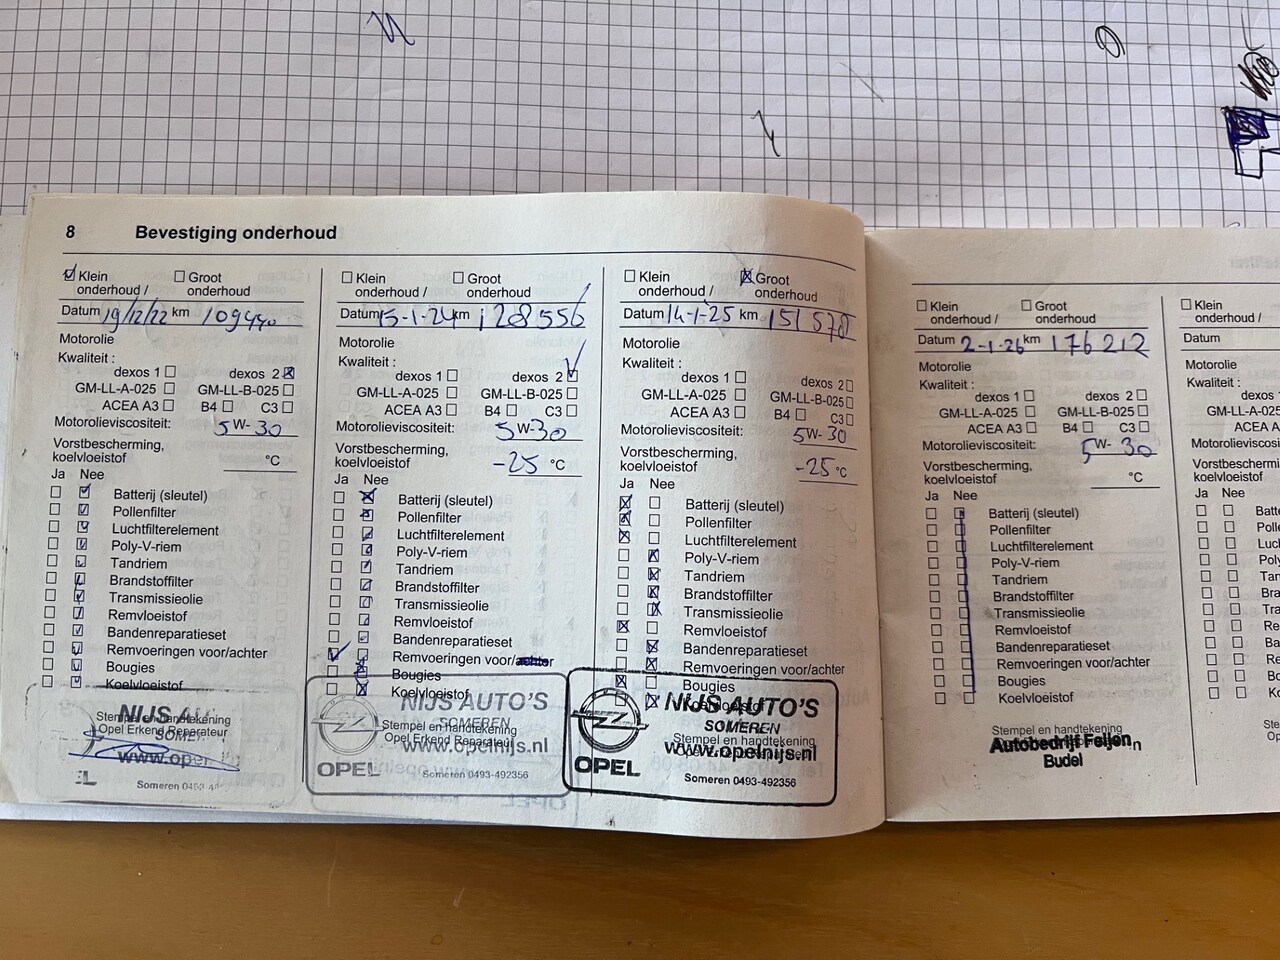 8 Bevestiging onderhoud
Klein onderhoud / Groot onderhoud
Datum 19/12/22 km 109440
Motorolie
Kwaliteit :
dexos 1 dexos 2
GM-LL-A-025 GM-LL-B-025
ACEA A3 B4 C3
Motorolieviscositeit: 5W-30
Vorstbescherming,
koelvloeistof °C
Ja Nee
Batterij (sleutel)
Pollenfilter
Luchtfilterelement
Poly-V-riem
Tandriem
Brandstoffilter
Transmissieolie
Remvloeistof
Bandenreparatieset
Remvoeringen voor/achter
Bougies
Koelvloeistof
NIJS
Stempel en handtekening
Opel Erkend Reparateur
www.opel
Someren
Klein onderhoud / Groot onderhoud
Datum 15-1-24 km 128556
Motorolie
Kwaliteit :
dexos 1 dexos 2
GM-LL-A-025 GM-LL-B-025
ACEA A3 B4 C3
Motorolieviscositeit: 5W-30
Vorstbescherming,
koelvloeistof -25 °C
Ja Nee
Batterij (sleutel)
Pollenfilter
Luchtfilterelement
Poly-V-riem
Tandriem
Brandstoffilter
Transmissieolie
Remvloeistof
Bandenreparatieset
Remvoeringen voor/achter
Bougies
Koelvloeistof
NIJS AUTO'S
SOMEREN
Stempel en handtekening
Opel Erkend Reparateur
www.opelnijs.nl
OPEL Someren 0493-492356
Klein onderhoud / Groot onderhoud
Datum 14-1-25 km 151578
Motorolie
Kwaliteit :
dexos 1 dexos 2
GM-LL-A-025 GM-LL-B-025
ACEA A3 B4 C3
Motorolieviscositeit: 5W-30
Vorstbescherming,
koelvloeistof -25 °C
Ja Nee
Batterij (sleutel)
Pollenfilter
Luchtfilterelement
Poly-V-riem
Tandriem
Brandstoffilter
Transmissieolie
Remvloeistof
Bandenreparatieset
Remvoeringen voor/achter
Bougies
Koelvloeistof
NIJS AUTO'S
SOMEREN
Stempel en handtekening
www.opelnijs.nl
OPEL Someren 0493-492356
Klein onderhoud / Groot onderhoud
Datum 2-1-26 km 176212
Motorolie
Kwaliteit :
dexos 1 dexos 2
GM-LL-A-025 GM-LL-B-025
ACEA A3 B4 C3
Motorolieviscositeit: 5W-30
Vorstbescherming,
koelvloeistof °C
Ja Nee
Batterij (sleutel)
Pollenfilter
Luchtfilterelement
Poly-V-riem
Tandriem
Brandstoffilter
Transmissieolie
Remvloeistof
Bandenreparatieset
Remvoeringen voor/achter
Bougies
Koelvloeistof
Stempel en handtekening
Autobedrijf Feijen
Budel
Klein
onderhoud /
Datum
Motorolie
Kwaliteit :
GM-LL-A-02
ACEA A
Motorolieviscosi
Vorstbescherming
koelvloeistof
Ja Nee
Batte
Polle
Luc
Pol
Ta
Bra
Tra
Re
Ba
Re
Bo
Ko